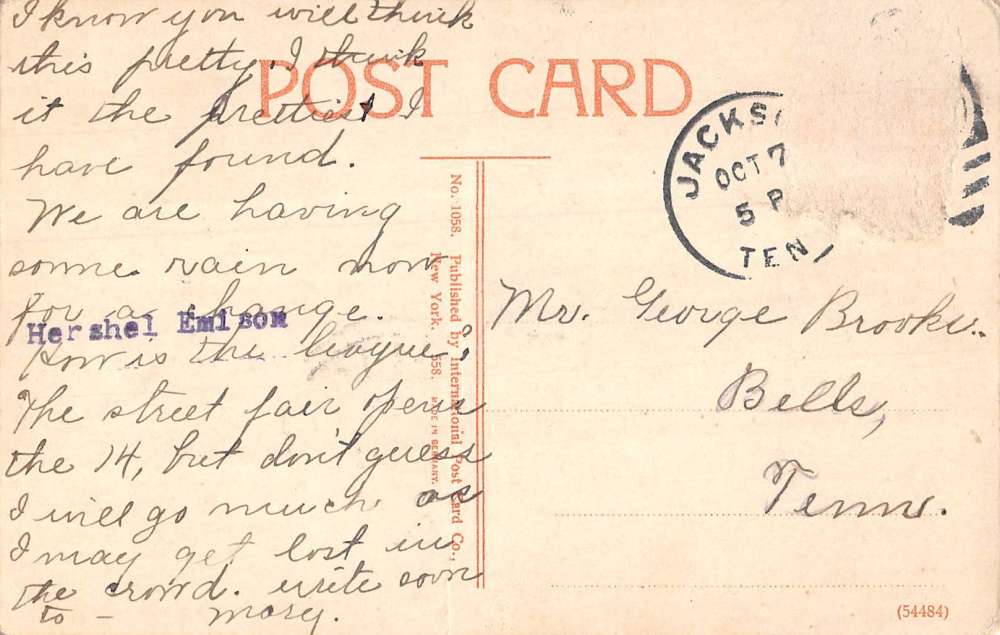 I know you will think
this pretty. I think
it the prettiest I
have found.
We are having
some rain now
for a change.
Hershel Emison
How is the league?
The street fair opens
the 14, but don't guess
I will go much as
I may get lost in
the crowd. write soon
to - Mary.
POST CARD
No. 1058. Published by International Post Card Co.,
New York. 558. MADE IN GERMANY.
JACKS
OCT 7
5 P
TEN
Mr. George Brooks.
Bells,
Tenn.
(54484)